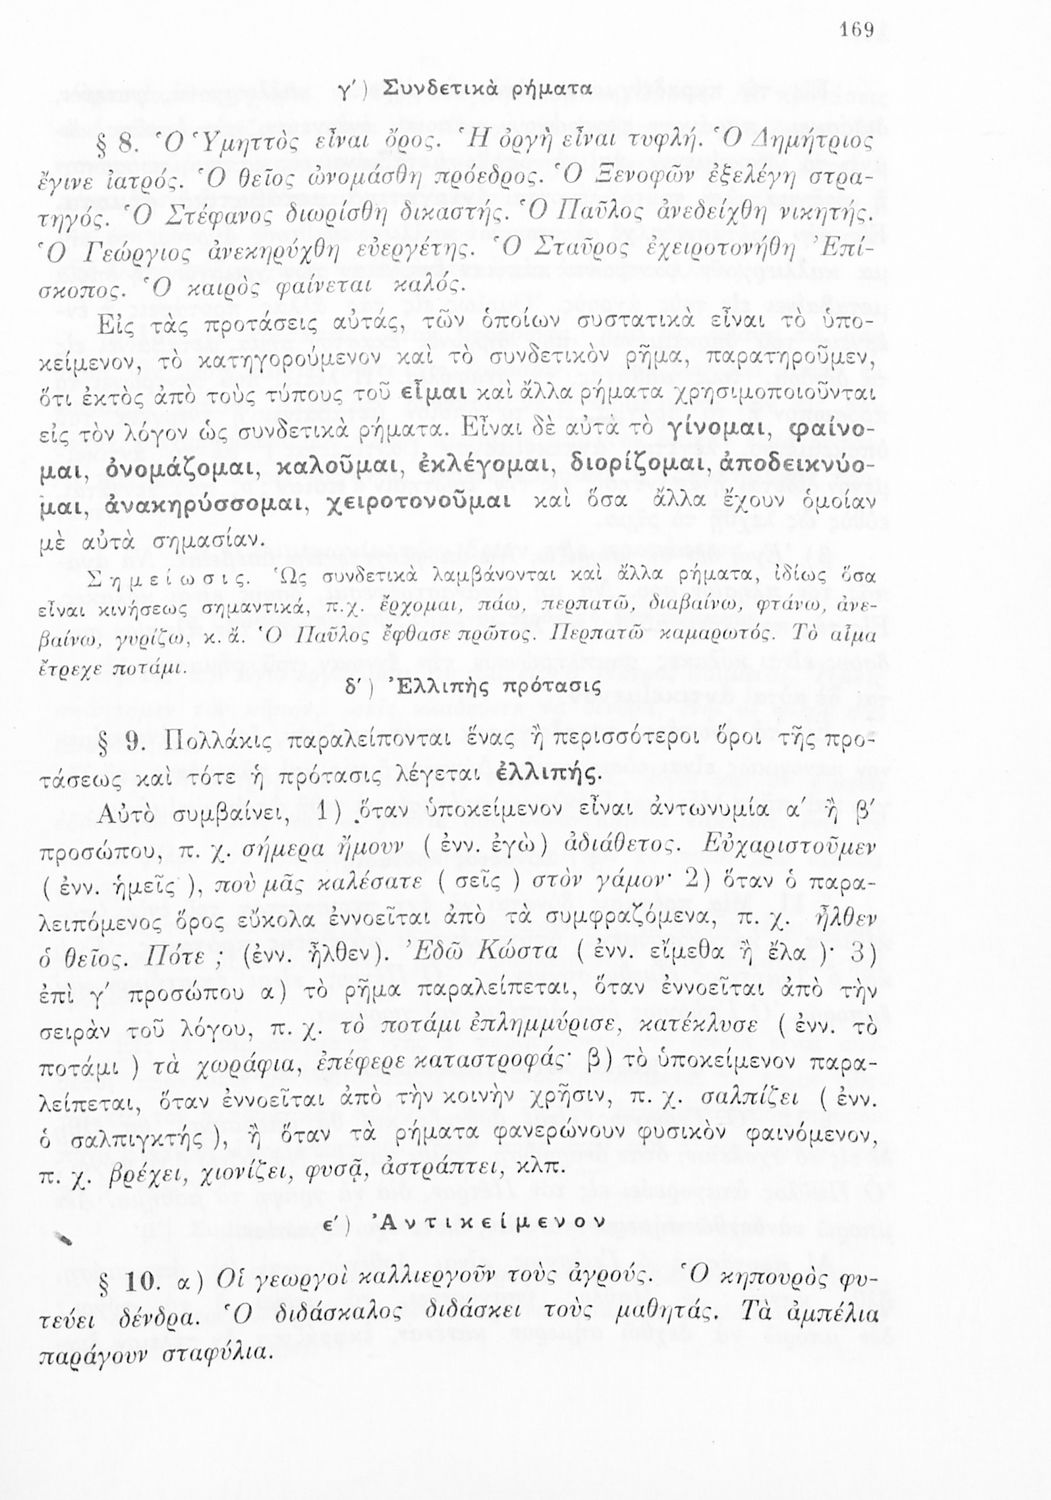 169
γ′) Συνδετικὰ ρήματα
§ 8. Ὁ Ὑμηττὸς εἶναι ὄρος. Ἡ ὀργὴ εἶναι τυφλή. Ὁ Δημήτριος
ἔγινε ἰατρός. Ὁ θεῖος ὠνομάσθη πρόεδρος. Ὁ Ξενοφῶν ἐξελέγη στρα-
τηγός. Ὁ Στέφανος διωρίσθη δικαστής. Ὁ Παῦλος ἀνεδείχθη νικητής.
Ὁ Γεώργιος ἀνεκηρύχθη εὐεργέτης. Ὁ Σταῦρος ἐχειροτονήθη Ἐπί-
σκοπος. Ὁ καιρὸς φαίνεται καλός.
Εἰς τὰς προτάσεις αὐτάς, τῶν ὁποίων συστατικὰ εἶναι τὸ ὑπο-
κείμενον, τὸ κατηγορούμενον καὶ τὸ συνδετικὸν ρῆμα, παρατηροῦμεν,
ὅτι ἐκτὸς ἀπὸ τοὺς τύπους τοῦ εἶμαι καὶ ἄλλα ρήματα χρησιμοποιοῦνται
εἰς τὸν λόγον ὡς συνδετικὰ ρήματα. Εἶναι δὲ αὐτὰ τὸ γίνομαι, φαίνο-
μαι, ὀνομάζομαι, καλοῦμαι, ἐκλέγομαι, διορίζομαι, ἀποδεικνύο-
μαι, ἀνακηρύσσομαι, χειροτονοῦμαι καὶ ὅσα ἄλλα ἔχουν ὁμοίαν
μὲ αὐτὰ σημασίαν.
Σημείωσις. Ὡς συνδετικὰ λαμβάνονται καὶ ἄλλα ρήματα, ἰδίως ὅσα
εἶναι κινήσεως σημαντικά, π.χ. ἔρχομαι, πάω, περπατῶ, διαβαίνω, φτάνω, ἀνε-
βαίνω, γυρίζω, κ. ἄ. Ὁ Παῦλος ἔφθασε πρῶτος. Περπατῶ καμαρωτός. Τὸ αἷμα
ἔτρεχε ποτάμι.
δ′) Ἐλλιπὴς πρότασις
§ 9. Πολλάκις παραλείπονται ἕνας ἢ περισσότεροι ὅροι τῆς προ-
τάσεως καὶ τότε ἡ πρότασις λέγεται ἐλλιπής.
Αὐτὸ συμβαίνει, 1) ὅταν ὑποκείμενον εἶναι ἀντωνυμία α′ ἢ β′
προσώπου, π. χ. σήμερα ἤμουν ( ἐνν. ἐγὼ) ἀδιάθετος. Εὐχαριστοῦμεν
( ἐνν. ἡμεῖς ), ποὺ μᾶς καλέσατε ( σεῖς ) στὸν γάμον· 2) ὅταν ὁ παρα-
λειπόμενος ὅρος εὔκολα ἐννοεῖται ἀπὸ τὰ συμφραζόμενα, π. χ. ἦλθεν
ὁ θεῖος. Πότε ; (ἐνν. ἦλθεν). Ἐδῶ Κώστα ( ἐνν. εἴμεθα ἢ ἔλα )· 3)
ἐπὶ γ′ προσώπου α) τὸ ρῆμα παραλείπεται, ὅταν ἐννοεῖται ἀπὸ τὴν
σειρὰν τοῦ λόγου, π. χ. τὸ ποτάμι ἐπλημμύρισε, κατέκλυσε ( ἐνν. τὸ
ποτάμι ) τὰ χωράφια, ἐπέφερε καταστροφάς· β) τὸ ὑποκείμενον παρα-
λείπεται, ὅταν ἐννοεῖται ἀπὸ τὴν κοινὴν χρῆσιν, π. χ. σαλπίζει ( ἐνν.
ὁ σαλπιγκτής ), ἢ ὅταν τὰ ρήματα φανερώνουν φυσικὸν φαινόμενον,
π. χ. βρέχει, χιονίζει, φυσᾷ, ἀστράπτει, κλπ.
ε′) Ἀντικείμενον
§ 10. α) Οἱ γεωργοὶ καλλιεργοῦν τοὺς ἀγρούς. Ὁ κηπουρὸς φυ-
τεύει δένδρα. Ὁ διδάσκαλος διδάσκει τοὺς μαθητάς. Τὰ ἀμπέλια
παράγουν σταφύλια.